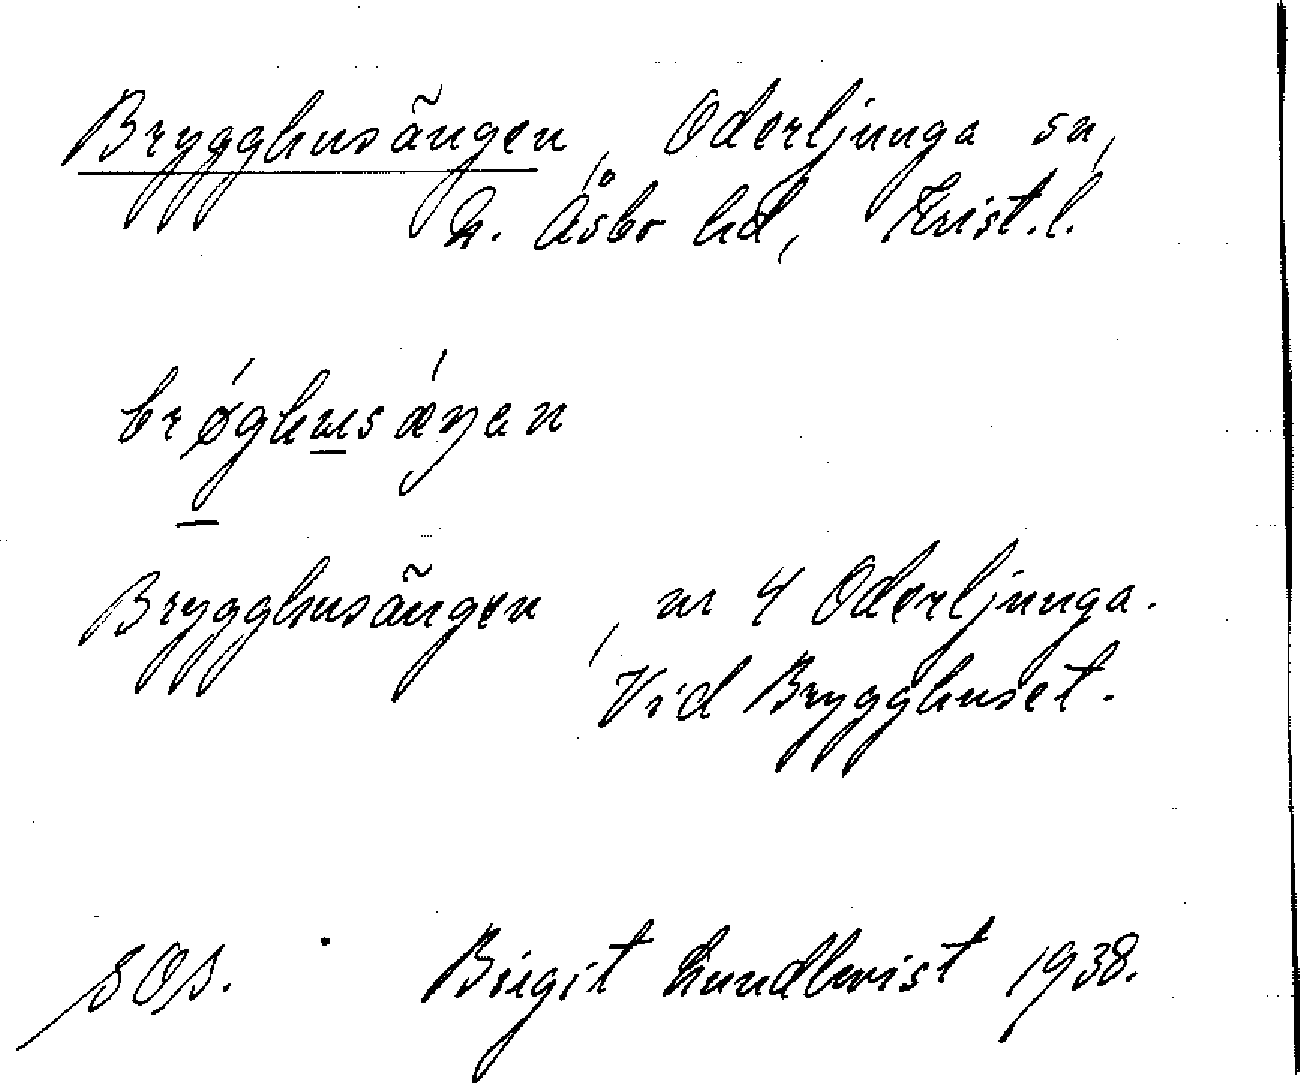 Brygghusängen, Oderljunga sn,
N. Åsbo hd, Krist.l.
brøghusæŋen
Brygghusängen, nr 4 Oderljunga.
Vid Brygghuset.
SOS. Birgit Lundkvist 1938.